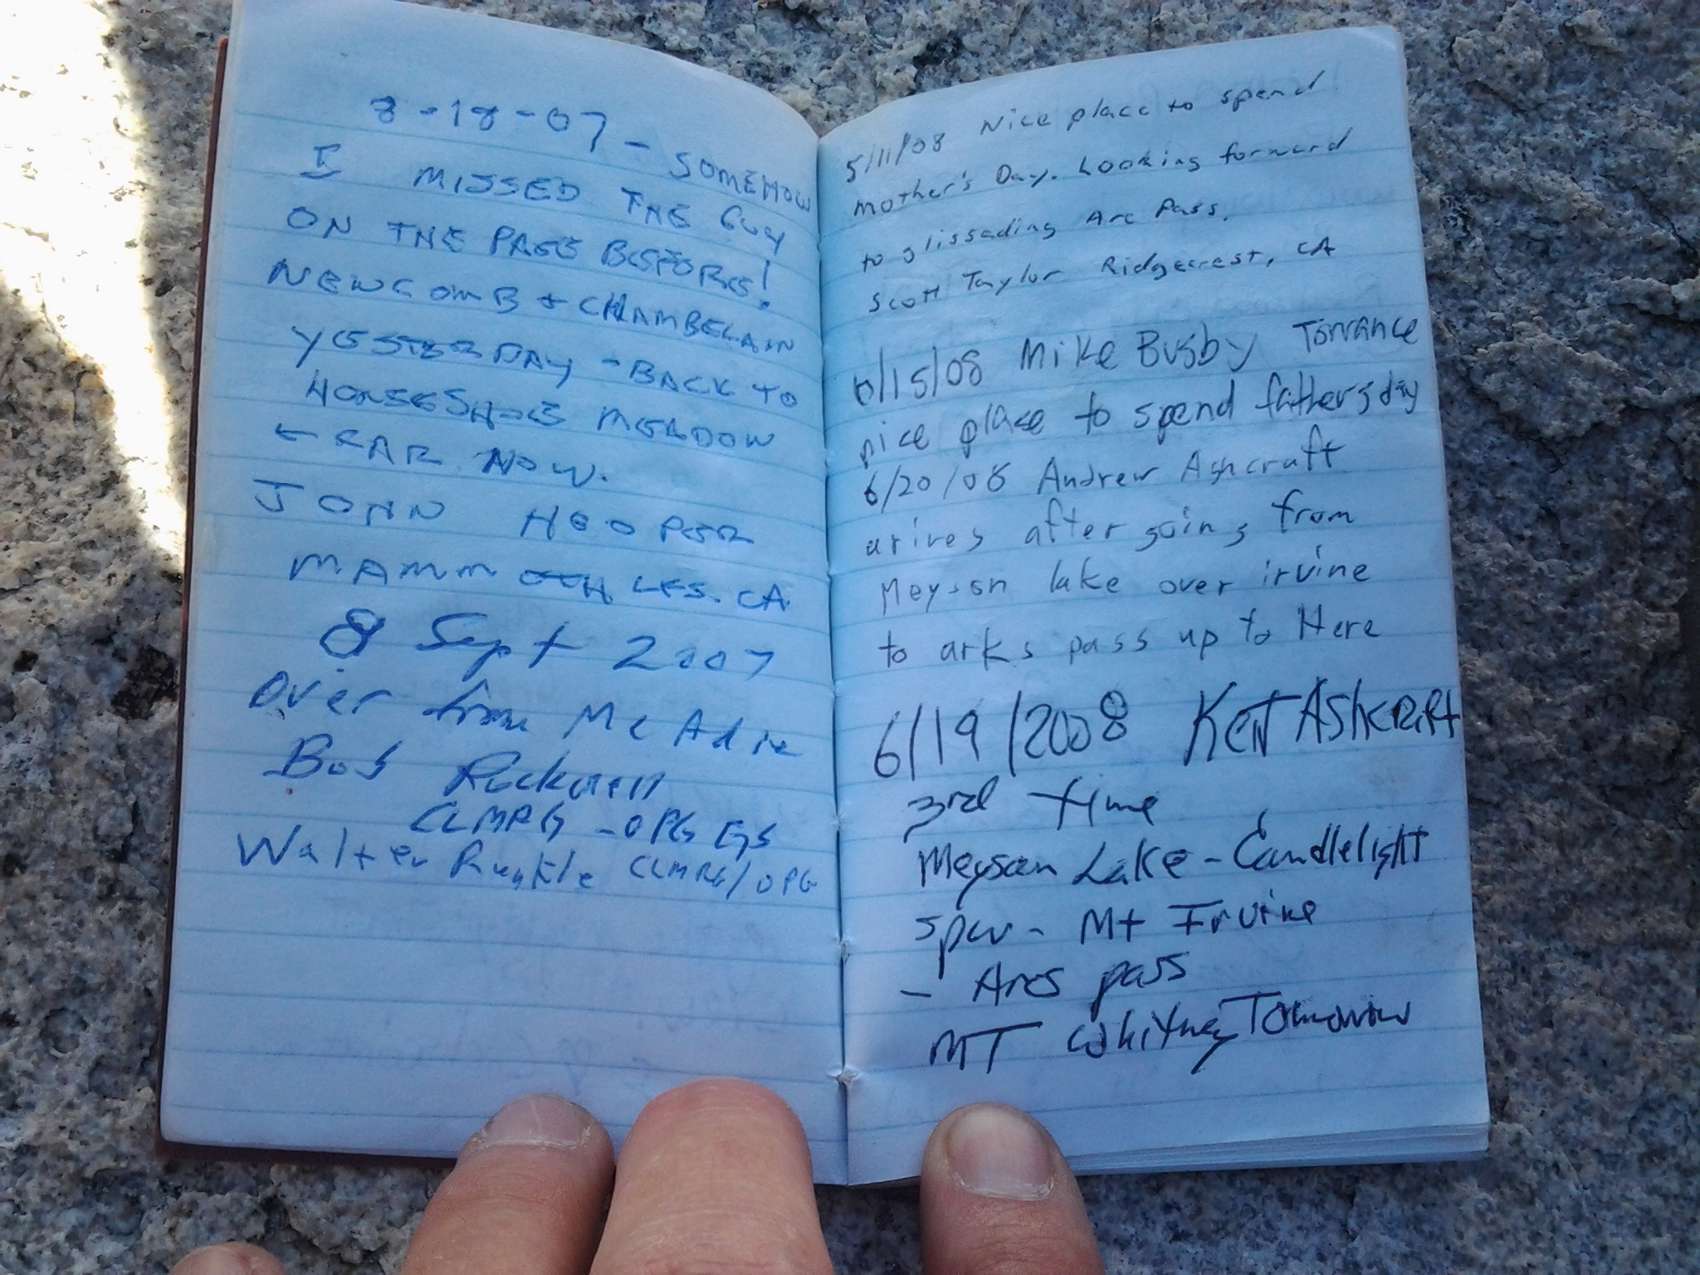 8-18-07 - SOMEHOW
I MISSED THE GUY
ON THE PAGE BEFORE!
NEWCOMB + CHAMBELAIN
YESTERDAY - BACK TO
HORSESHOE MEADOW
← CAR NOW.
JOHN HOOPER
MAMMOTH LKS. CA
8 Sept 2007
Over from Mc Adie
Bob Rockwell
CLMRG - OPG EJS
Walter CLMRG/OPG
5/11/08 Nice place to spend
Mother's Day. Looking forward
to glissading Arc Pass.
Scott Taylor Ridgecrest, CA
6/15/08 Mike Busby Torrance
nice place to spend fathersday
6/20/08 Andrew Ashcraft
arives after going from
Meysan lake over irvine
to arks pass up to Here
6/19/2008 Kent Ashcraft
3rd time
Meysan Lake - Candlelight
spur - Mt Irvine
- Arcs pass
MT Whitney Tomorrow